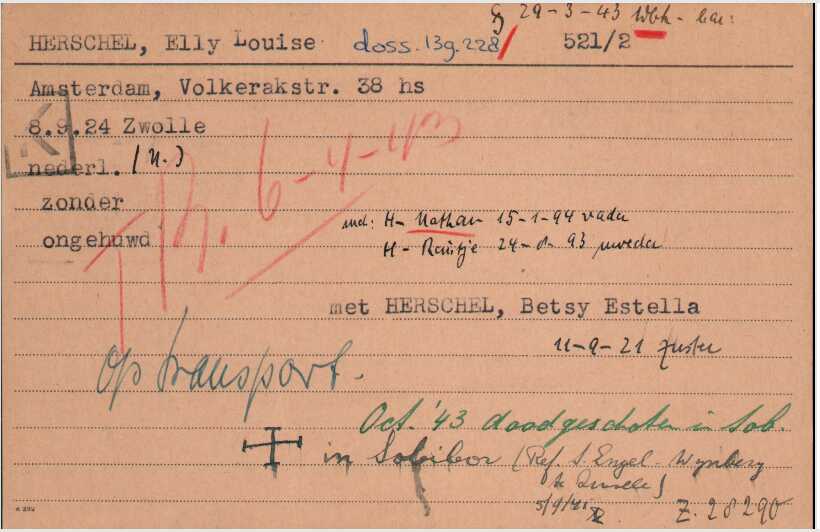 29-3-43 Wbk - bar:
HERSCHEL, Elly Louise doss. 13g.228/ 521/2
Amsterdam, Volkerakstr. 38 hs
K
8.9.24 Zwolle
nederl. (N.)
TR. 6-4-43
zonder
med: H- Nathan 15-1-94 vader
ongehuwd
H- 24-8-93 moeder
met HERSCHEL, Betsy Estella
11-9-21 zuster
Op transport.
Oct. '43 doodgeschoten in Sob.
in Sobibor (Ref. S. Engel-Wynberg
te Zwolle)
5/9/45
Z. 28290